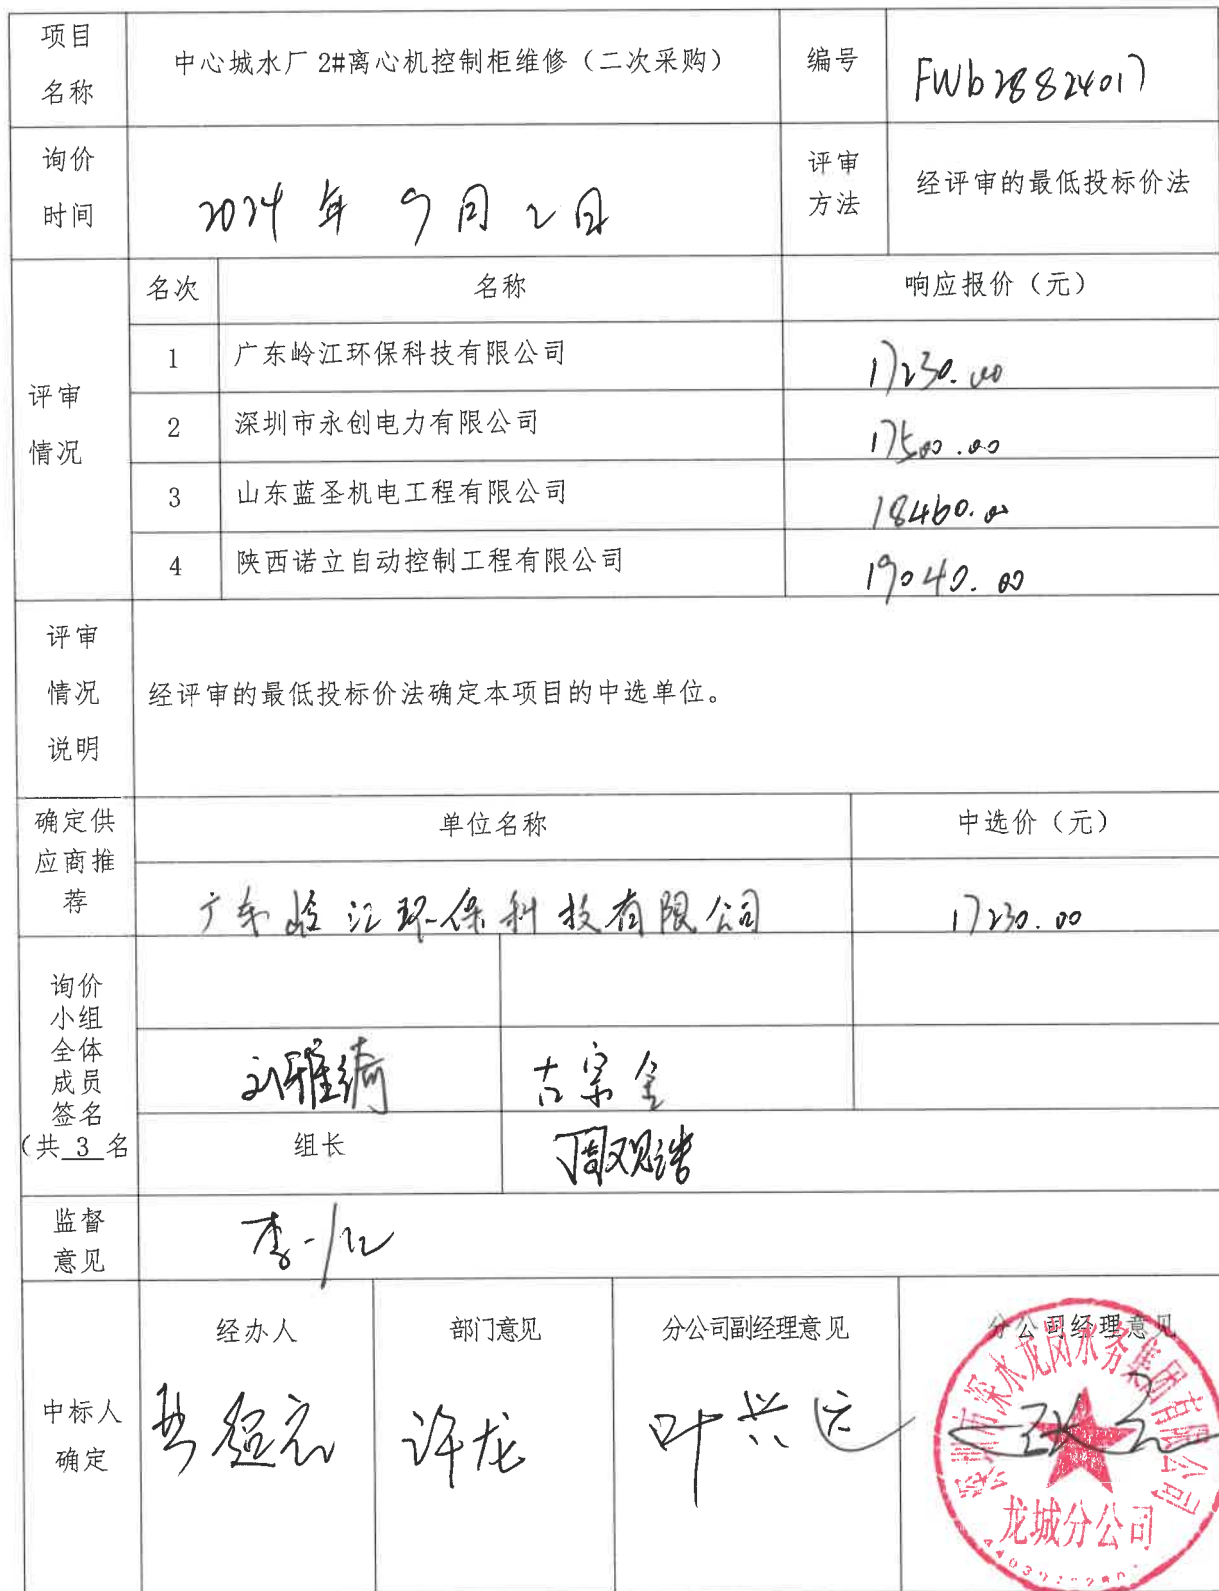 项目名称 中心城水厂 2#离心机控制柜维修（二次采购） 编号 FWb28824017
询价时间 2024 年 9 月 2 日 评审方法 经评审的最低投标价法
评审情况
名次 名称 响应报价（元）
1 广东岭江环保科技有限公司 17230.00
2 深圳市永创电力有限公司 17500.00
3 山东蓝圣机电工程有限公司 18460.00
4 陕西诺立自动控制工程有限公司 19040.00
评审情况说明 经评审的最低投标价法确定本项目的中选单位。
确定供应商推荐 单位名称 中选价（元）
广东岭江环保科技有限公司 17230.00
询价小组全体成员签名（共 3 名
刘雅绮 古宗全
组长 周观浩
监督意见
中标人确定
经办人 部门意见 分公司副经理意见 分公司经理意见
许龙 叶兴运
深圳市深水龙岗水务集团有限公司
龙城分公司